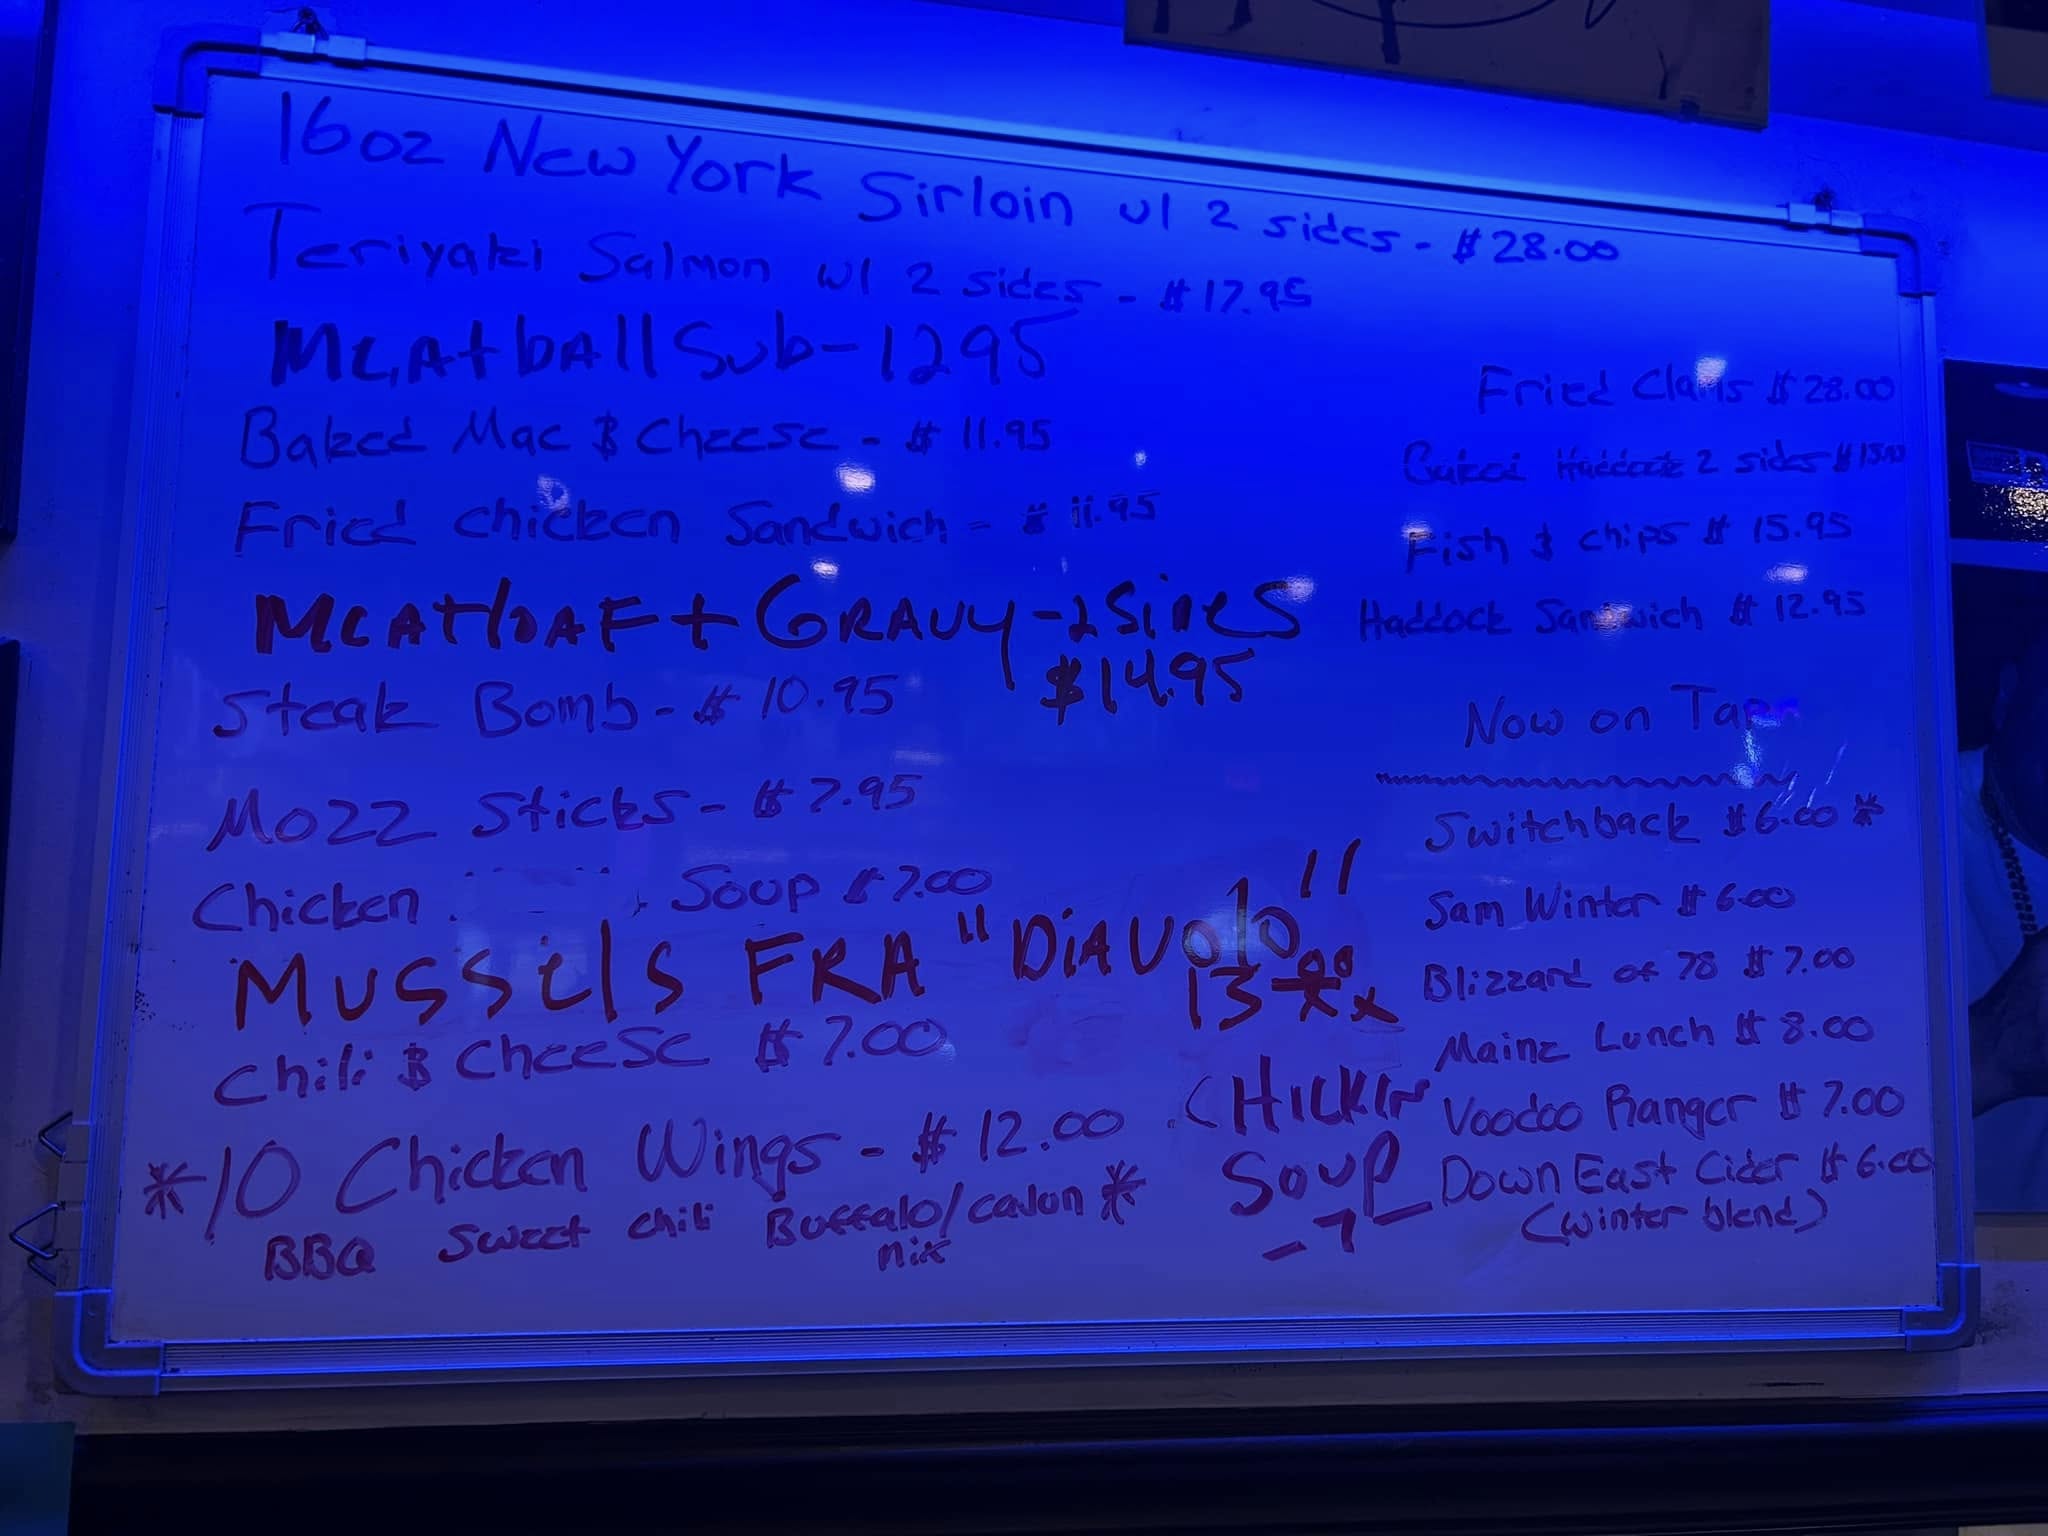 16oz New York Sirloin w/ 2 sides - $28.00
Teriyaki Salmon w/ 2 sides - $17.95
Meatball Sub - 1295
Baked Mac & Cheese - $11.95
Fried Chicken Sandwich - $11.95
MEATloAF + GRAVY - 2 Sides
$14.95
Steak Bomb - $10.95
Mozz Sticks - $7.95
Chicken Soup $7.00
MUSSels FRA "DiAVolo"
13.00
Chili & Cheese $7.00
*10 Chicken Wings - $12.00
BBQ Sweet chili Buffalo/cajun *
mix
CHICKIN
Soup
- 7 -
Fried Clams $28.00
Baked Haddock 2 sides
Fish & chips $15.95
Haddock Sandwich $12.95
Now on Tap
Switchback $6.00 *
Sam Winter $6.00
Blizzard of 78 $7.00
Maine Lunch $8.00
Voodoo Ranger $7.00
Down East Cider $6.00
(winter blend)